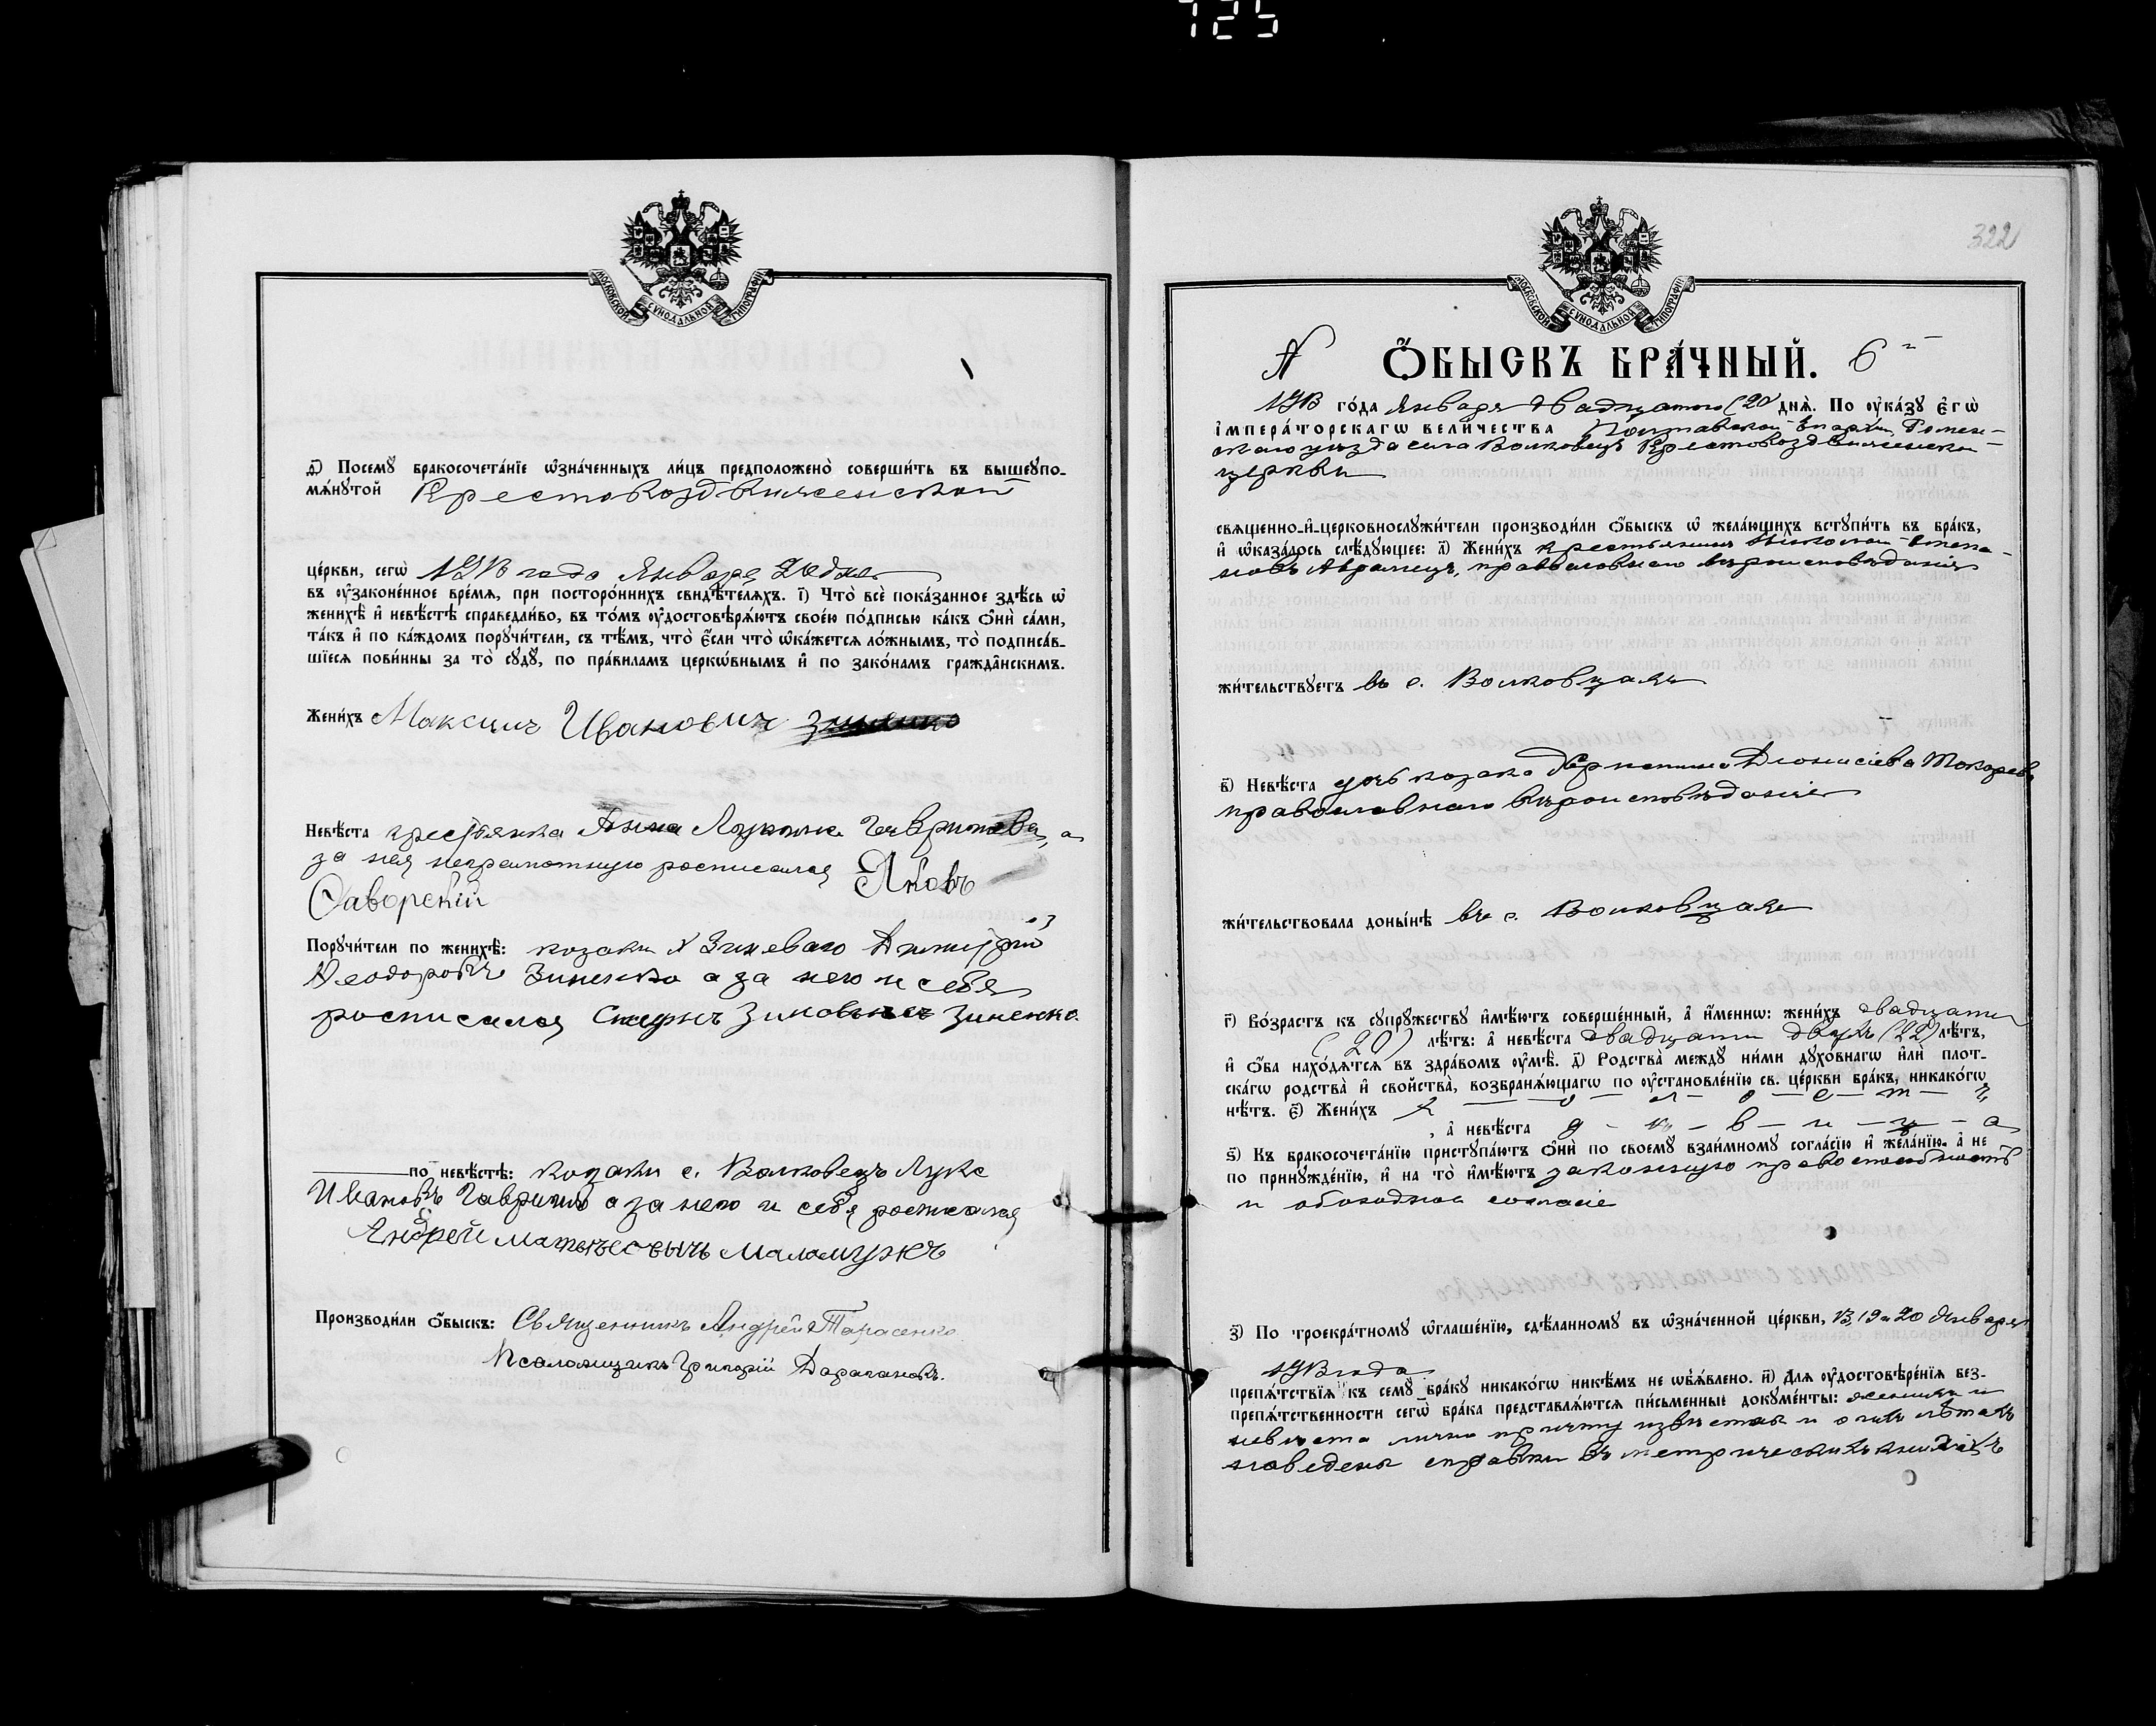 725
МОСКОВСКОЙ СѴНОДАЛЬНОЙ ТИПОГРАФІИ
д҃) Посемꙋ бракосочета́нїе ѡ҆зна́ченныхъ ли́цъ предположено̀ соверши́ть въ вышеꙋпо-
мѧ́нꙋтой Крестовоздвиженской
це́ркви, сегѡ̀ года Января дня
въ ᲂу҆зако́ненное вре́мѧ, при посторо́ннихъ свидѣ́телѧхъ. і҃) Что̀ всѐ пока́занное здѣ́сь ѡ҆
женихѣ̀ и҆ невѣ́стѣ справедли́во, въ то́мъ ᲂу҆достовѣрѧ́ютъ свое́ю по́дписью ка́къ ѻ҆нѝ са́ми,
та́къ и҆ по ка́ждомъ порꙋчи́тели, съ тѣ́мъ, что̀ є҆́сли что̀ ѡ҆ка́жетсѧ ло́жнымъ, то̀ подписа́в-
шїесѧ пови́нны за то̀ сꙋдꙋ̀, по пра́виламъ церкѡ́внымъ и҆ по зако́намъ гражда̂нскимъ.
Жени́хъ Максимъ Ивановичъ Зиненко
Невѣ́ста крестьянка Анна Лукина Гаврилова, а
за нея неграмотную росписался Яковъ
Ѳаворскій
Порꙋчи́тели по женихѣ̀: козаки х Зиневаго Димитрій
Ѳеодоровъ Зиненко а за него и себя
росписался Зиненко
по невѣ́стѣ: козаки с. Волковецъ Лука
Ивановъ Гавриловъ а за него и себя росписался
Андрей Маламужъ
Производи́ли ѻ҆́быскъ: Священникъ Андрей Тарасенко
Псаломщикъ Григорій Дарагановъ.
322
МОСКОВСКОЙ СѴНОДАЛЬНОЙ ТИПОГРАФІИ
N Ѻ҆́БЫСКЪ БРА́ЧНЫЙ. 6
го́да Января двадцатаго (20 днѧ̀. По ᲂу҆ка́зꙋ є҆гѡ̀
і҆мпера́торскагѡ вели́чества Полтавской Епархіи Ромен-
скаго уѣзда села Волковецъ Крестовоздвиженской
церкви
свѧщенно-и҆-церковнослꙋжи́тели производи́ли ѻ҆́быскъ ѡ҆ жела́ющихъ вступи́ть въ бра́къ,
и҆ ѡ҆каза́лось слѣ́дꙋющее: а҃) Жени́хъ крестьянинъ Николай Степа-
новъ Авраменко, православнаго вѣроисповѣданія
жи́тельствꙋетъ въ с. Волковцахъ
в҃) Невѣ́ста дочь козака Діонисіева Токарева
православнаго вѣроисповѣданія
жи́тельствовала доны́нѣ въ с. Волковцахъ
г҃) Во́зрастъ къ сꙋпрꙋ́жествꙋ и҆мѣ́ютъ соверше́нный, а҆ и҆́меннѡ: жени́хъ двадцати
(20) лѣ́тъ: а҆ невѣ́ста двадцати двухъ (22) лѣ́тъ,
и҆ ѻ҆́ба нахо́дѧтсѧ въ здра́вомъ ᲂу҆мѣ̀. д҃) Родства̀ между ни́ми дꙋхо́внагѡ и҆лѝ плот-
ска́гѡ родства̀ и҆ свойства̀, возбранѧ́ющагѡ по ᲂу҆становле́нїю св. це́ркви бра́къ, никако́гѡ
нѣ́тъ. є҃) Жени́хъ х — о — л — о — с — т — ъ
, а҆ невѣ́ста д — ѣ — в — и — ц — а
ѕ҃) Къ бракосочета́нїю пристꙋпа́ютъ ѻ҆нѝ по своемꙋ̀ взаи́мномꙋ согла́сїю и҆ жела́нїю, а҆ не
по принꙋжде́нїю, и҆ на то̀ и҆мѣ́ютъ законную правоспособность
и обоюдное согласіе
з҃) По троекра́тномꙋ ѡ҆глаше́нїю, сдѣ́ланномꙋ въ ѡ҆зна́ченной це́ркви, 13, 19 и 20 Января
года
препѧ́тствїѧ къ семꙋ̀ бра́кꙋ никако́гѡ никѣ́мъ не ѡ҆б̾ѧ́влено. и҃) Для ᲂу҆достовѣре́нїѧ без-
препѧ́тственности сегѡ̀ бра́ка представлѧ́ютсѧ пи́сьменные докꙋме́нты: женихъ и
невѣста лично причту извѣстны и о ихъ лѣтахъ
наведены справки въ метрическихъ книгахъ